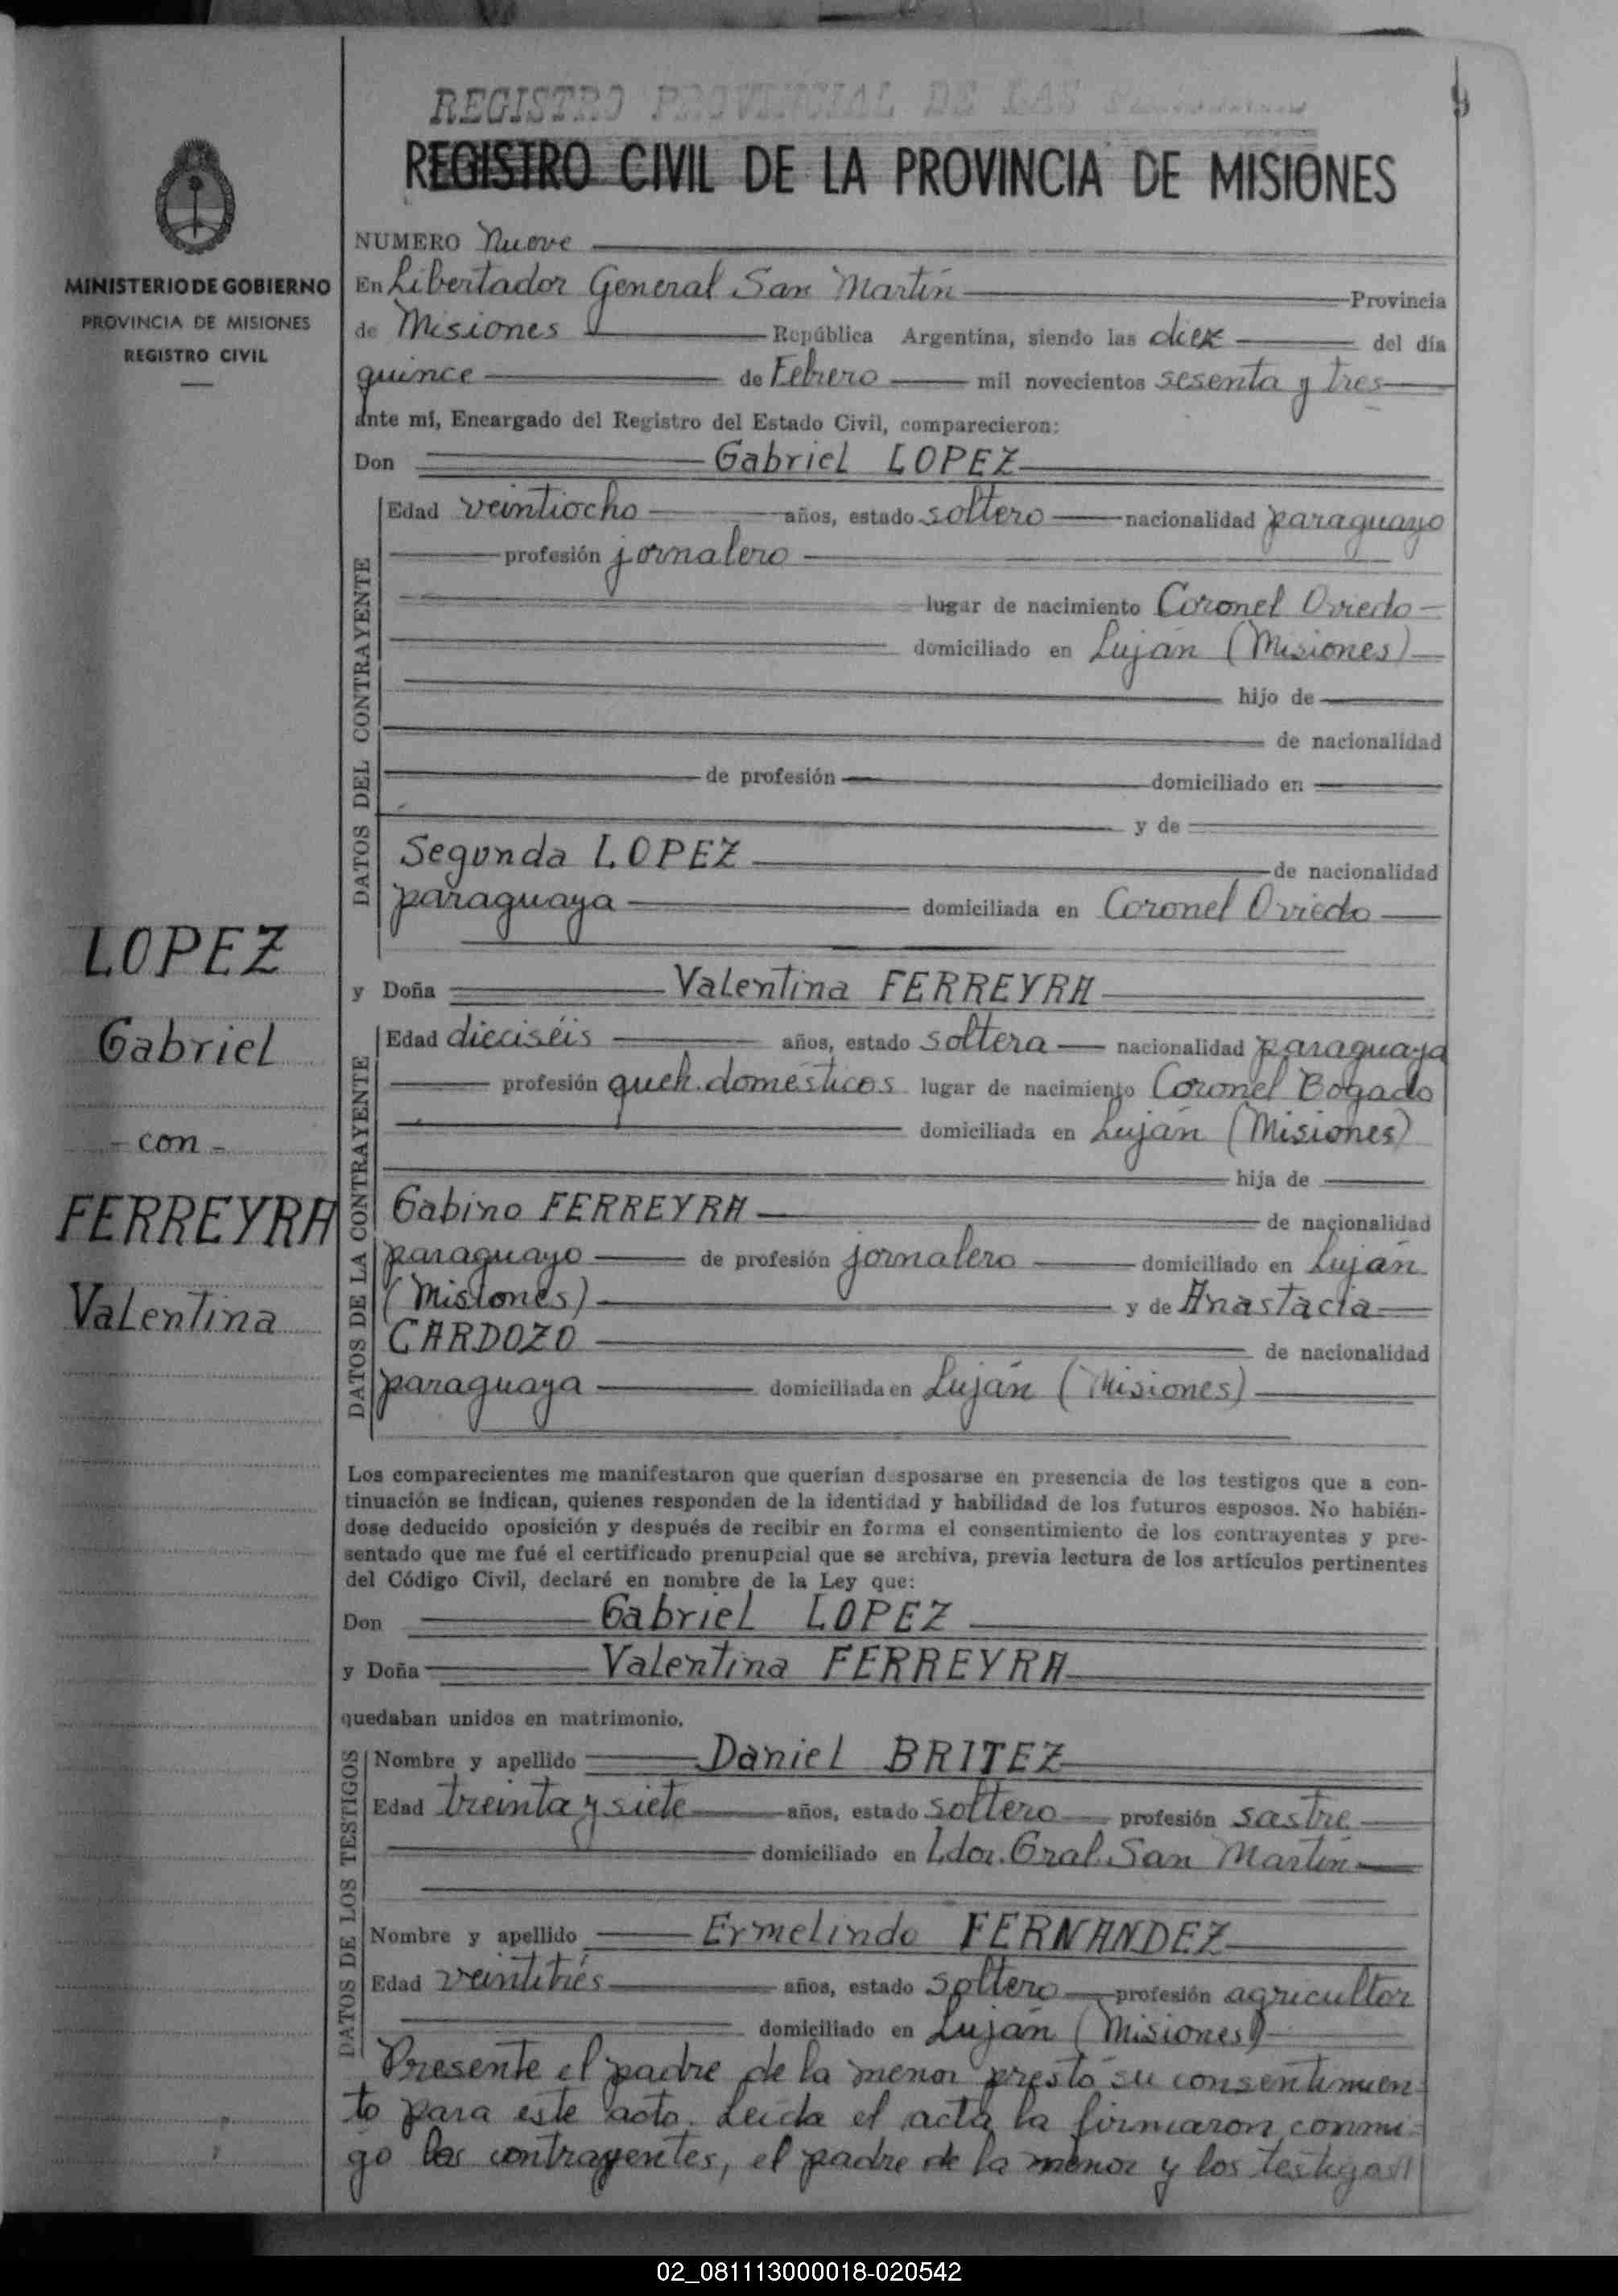 REGISTRO PROVINCIAL DE LAS
9
REGISTRO CIVIL DE LA PROVINCIA DE MISIONES
MINISTERIO DE GOBIERNO
PROVINCIA DE MISIONES
REGISTRO CIVIL
NUMERO Nueve
En Libertador General San Martín Provincia
de Misiones República Argentina, siendo las diez del día
quince de Febrero mil novecientos sesenta y tres
ante mí, Encargado del Registro del Estado Civil, comparecieron:
Don Gabriel LOPEZ
DATOS DEL CONTRAYENTE
Edad veintiocho años, estado soltero nacionalidad paraguayo
profesión jornalero
lugar de nacimiento Coronel Oviedo
domiciliado en Luján (Misiones)
hijo de
de nacionalidad
de profesión domiciliado en
y de
Segunda LOPEZ de nacionalidad
paraguaya domiciliada en Coronel Oviedo
LOPEZ
Gabriel
- con -
FERREYRA
Valentina
y Doña Valentina FERREYRA
DATOS DE LA CONTRAYENTE
Edad dieciséis años, estado soltera nacionalidad paraguaya
profesión queh. domésticos lugar de nacimiento Coronel Bogado
domiciliada en Luján (Misiones)
hija de
Gabino FERREYRA de nacionalidad
paraguayo de profesión jornalero domiciliado en Luján
(Misiones) y de Anastacia
CARDOZO de nacionalidad
paraguaya domiciliada en Luján (Misiones)
Los comparecientes me manifestaron que querían desposarse en presencia de los testigos que a con-
tinuación se indican, quienes responden de la identidad y habilidad de los futuros esposos. No habién-
dose deducido oposición y después de recibir en forma el consentimiento de los contrayentes y pre-
sentado que me fué el certificado prenupcial que se archiva, previa lectura de los artículos pertinentes
del Código Civil, declaré en nombre de la Ley que:
Don Gabriel LOPEZ
y Doña Valentina FERREYRA
quedaban unidos en matrimonio.
DATOS DE LOS TESTIGOS
Nombre y apellido Daniel BRITEZ
Edad treinta y siete años, estado soltero profesión sastre
domiciliado en Ldor. Gral. San Martín
Nombre y apellido Ermelindo FERNANDEZ
Edad veintitrés años, estado soltero profesión agricultor
domiciliado en Luján (Misiones)
Presente el padre de la menor prestó su consentimien-
to para este acto. Leída el acta la firmaron conmi-
go los contrayentes, el padre de la menor y los testigos//
02_081113000018-020542